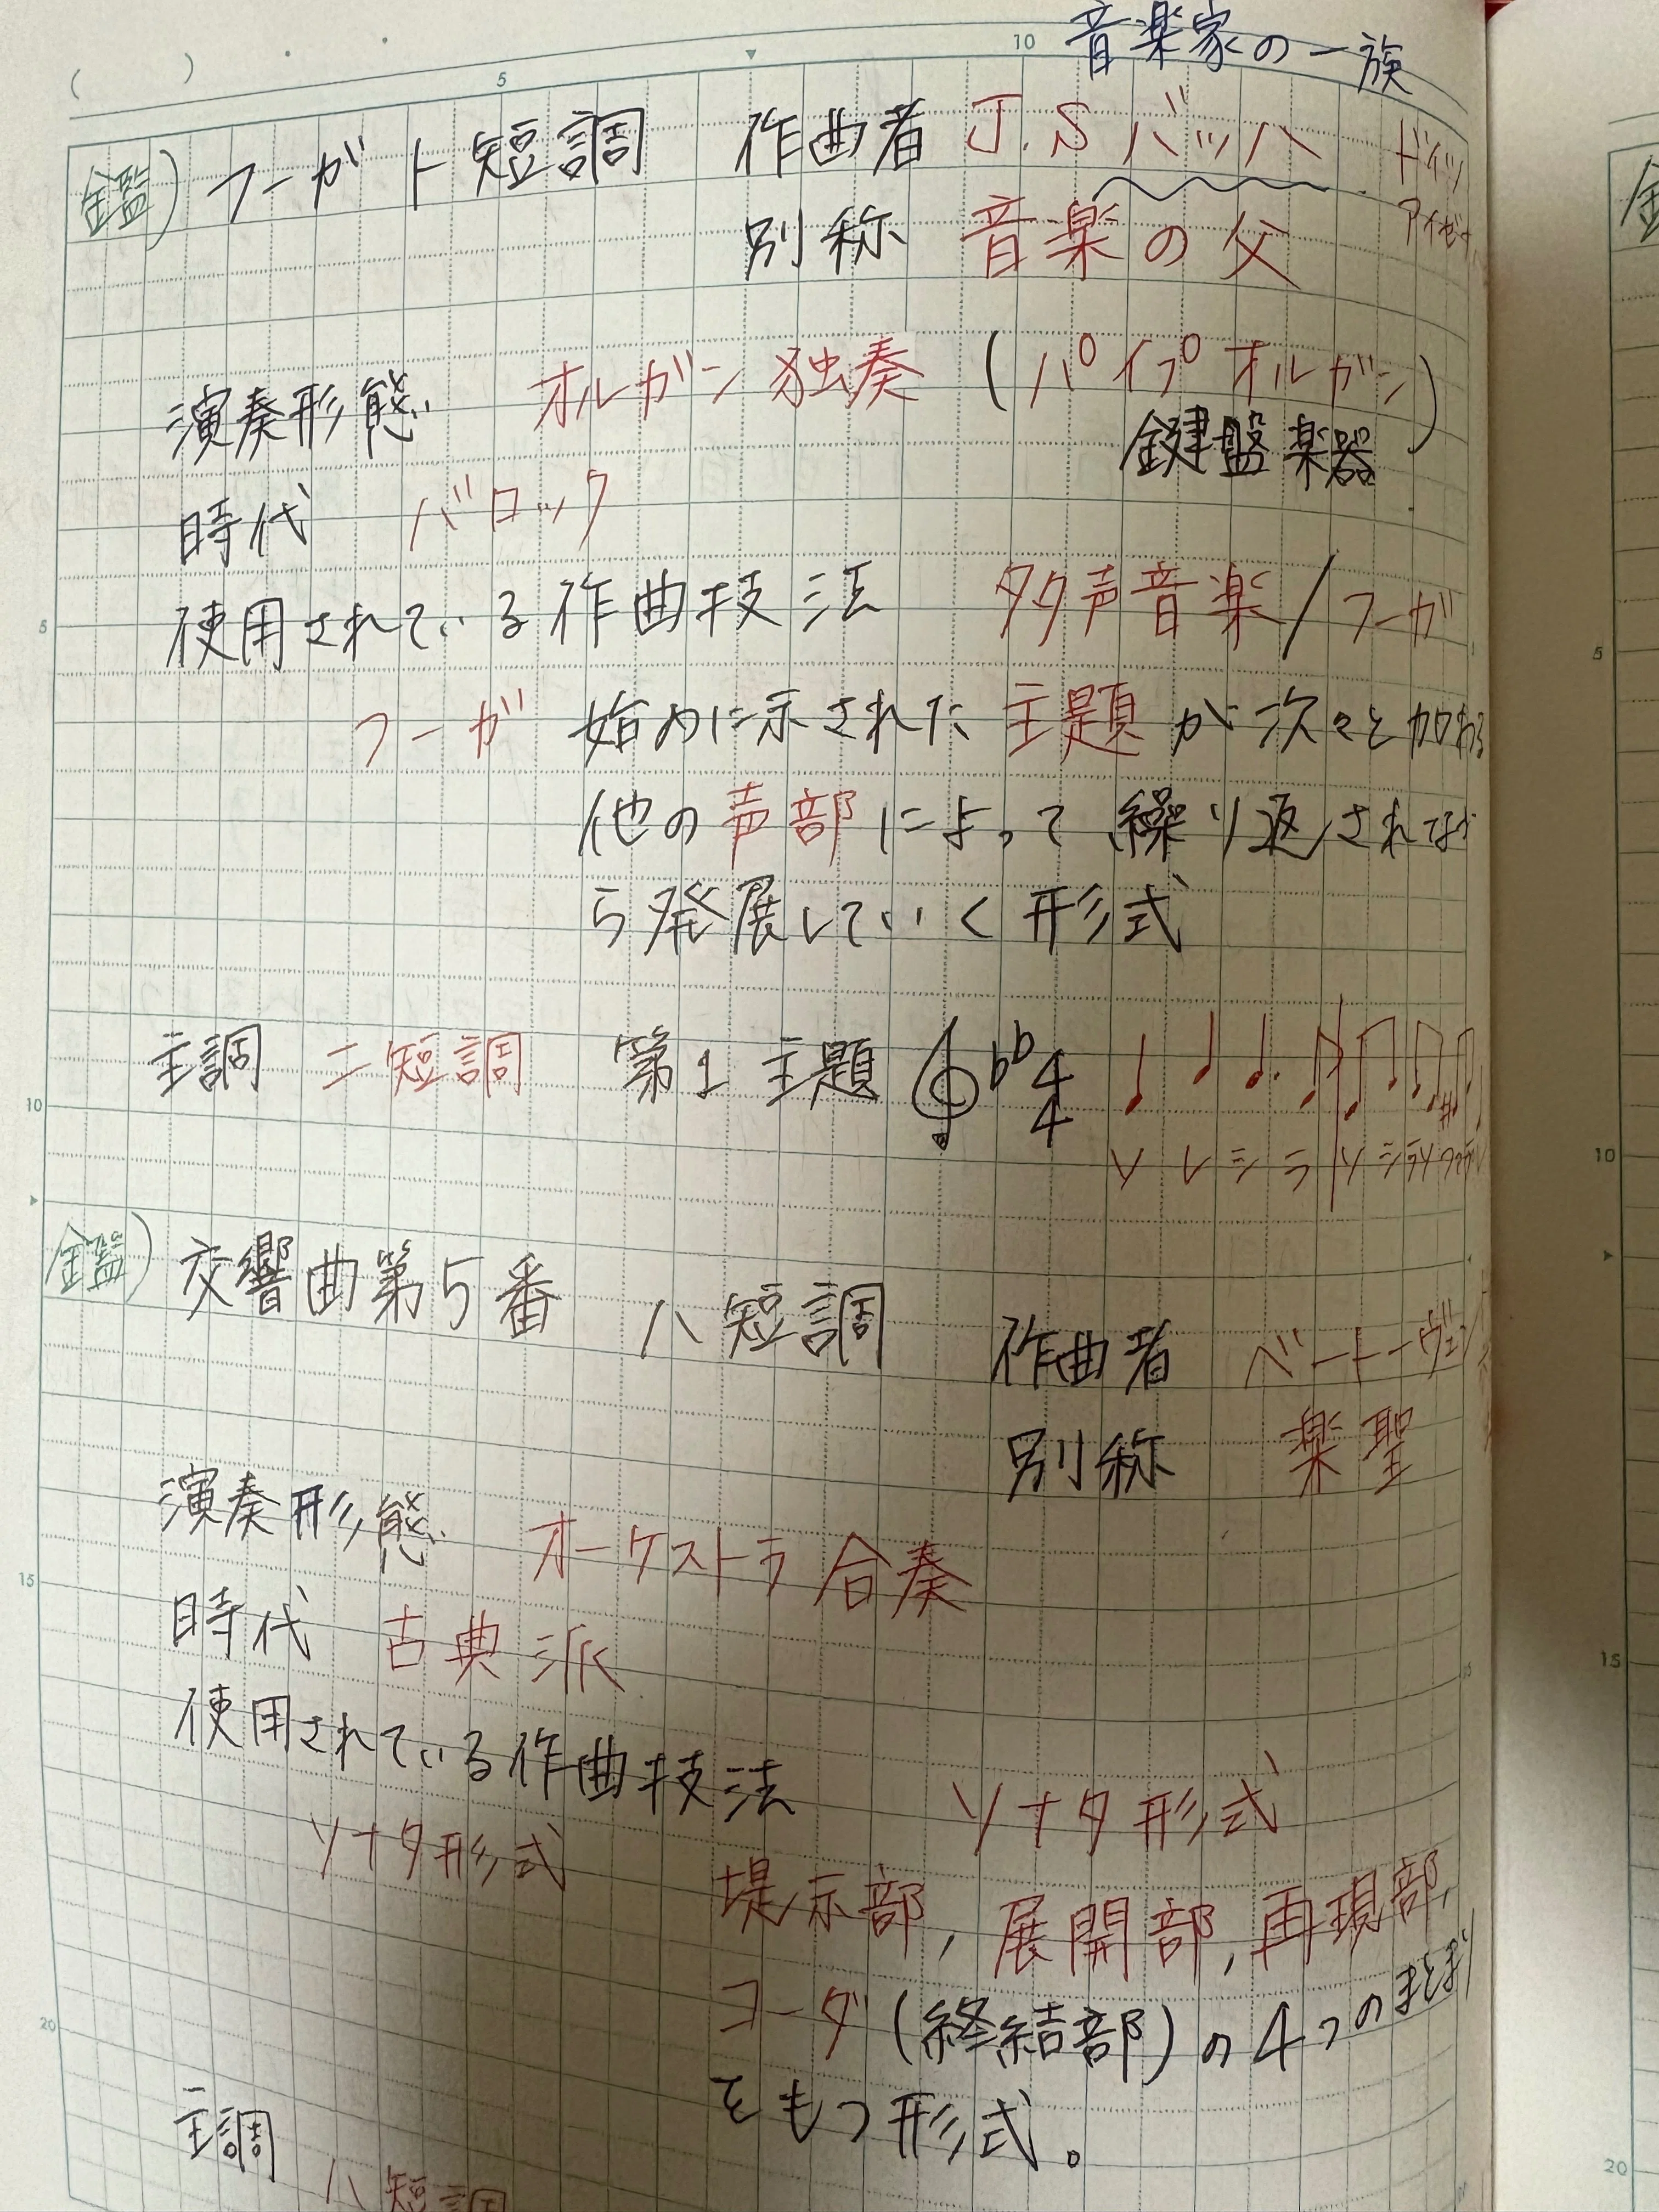 音楽家の一族
鑑) フーガ ト短調 作曲者 J.S バッハ ドイツ
別称 音楽の父 アイゼナ
演奏形態 オルガン独奏 (パイプオルガン)
鍵盤楽器
時代 バロック
使用されている作曲技法 多声音楽/フーガ
フーガ 始めに示された主題が次々と加わる
他の声部によって繰り返されなが
ら発展していく形式
主調 ニ短調 第1主題 4/4
ソ レ シ ラ ソ シラソ
鑑) 交響曲第5番 ハ短調 作曲者 ベートーヴェン
別称 楽聖
演奏形態 オーケストラ合奏
時代 古典派
使用されている作曲技法 ソナタ形式
ソナタ形式 堤示部, 展開部, 再現部,
コーダ (終結部) の4つのまとまり
をもつ形式。
主調 ハ短調
5
10
5
10
15
20
5
10
15
20